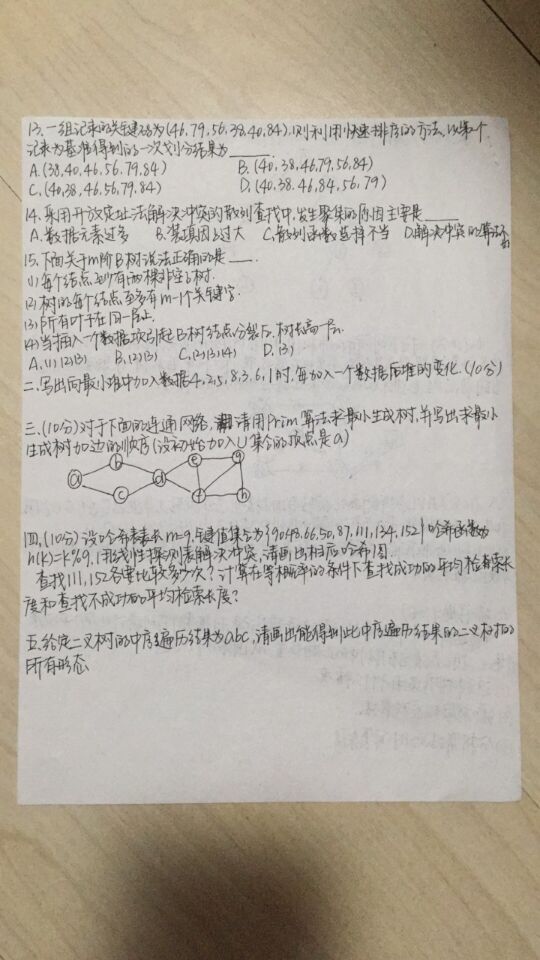 13.一组记录的关键码为(46,79,56,38,40,84),则利用快速排序的方法,以第一个
记录为基准得到的一次划分结果为____.
A.(38,40,46,56,79,84) B.(40,38,46,79,56,84)
C.(40,38,46,56,79,84) D.(40,38,46,84,56,79)
14.采用开放定址法解决冲突的散列查找中,发生聚集的原因主要是____
A.数据元素过多 B.装填因子过大 C.散列函数选择不当 D.解决冲突的算法不
15.下面关于m阶B树说法正确的是____.
(1)每个结点至少有两棵非空子树.
(2)树的每个结点至多有m-1个关键字.
(3)所有叶子在同一层上.
(4)当插入一个数据项引起B树结点分裂后,树长高一层.
A.(1)(2)(3) B.(2)(3) C.(2)(3)(4) D.(3)
二.写出向最小堆中加入数据4,2,5,8,3,6,1时,每加入一个数据后堆的变化.(10分)
三.(10分)对于下面的连通网络,请用Prim算法求最小生成树,并写出求最小
生成树加边的顺序(设初始加入U集合的顶点是a)
a b c d e f g h
四.(10分)设哈希表表长m=9,关键值集合为{9048,66,50,87,111,134,152}哈希函数为
h(k)=k%9,用线性探测列表解决冲突,请画出相应哈希图
查找111,152各要比较多少次?计算在等概率的条件下查找成功的平均检索长
度和查找不成功的平均检索长度?
五.给定二叉树的中序遍历结果为abc,请画出能得到此中序遍历结果的二叉树的
所有形态